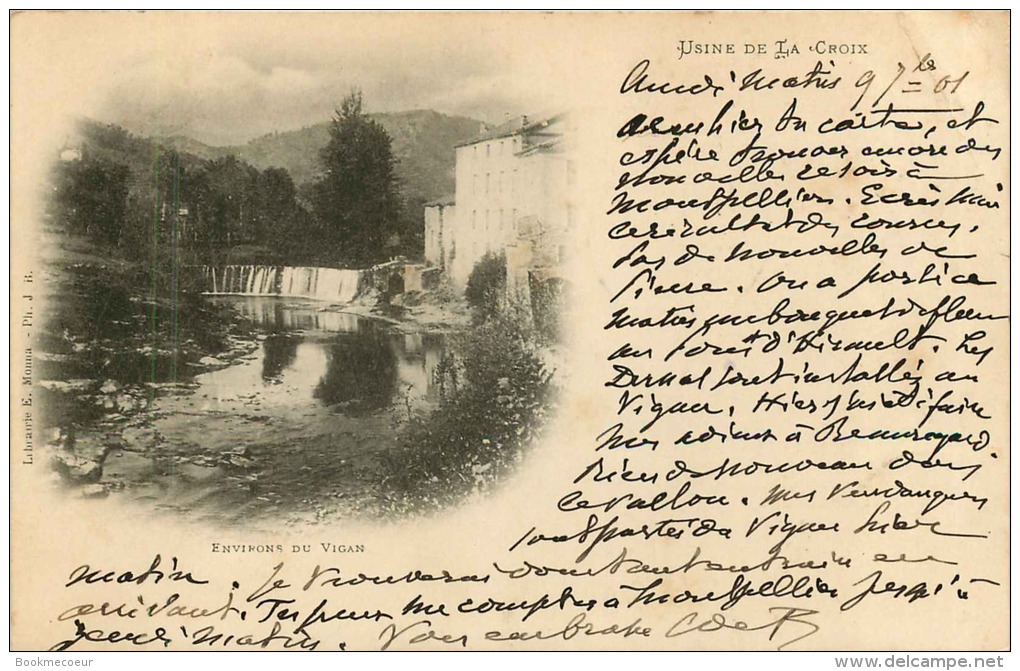 USINE DE LA CROIX
Lundi Matin 9 7bre 01
Reçu hier ta carte, et
espère trouver encore des
nouvelles ce soir à
Montpellier. Ecris moi
le résultat des courses.
Pas de nouvelles de
Pierre. On a porté ce
matin un bouquet de fleurs
au Pont d'Hérault. Les
sont installés au
Vigan. Hier j'ai été faire
mes adieux à Beauregard.
Rien de nouveau dans
le vallon. Mes vendangeurs
sont partis du Vigan hier
matin. Je trouverai dont tout en train en
arrivant. Tu peux me compter à Montpellier jusqu'à
jeudi matin. Vous embrasse
ENVIRONS DU VIGAN
Librairie E. Monna - Ph. J. B.
Bookmecoeur
delcampe.net